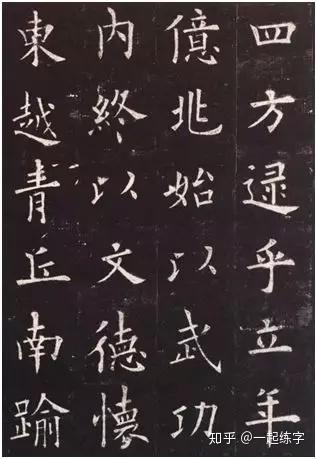 四方逮乎立年
億兆始以武功
内終以文德懷
東越青丘南踰
知乎 @一起练字